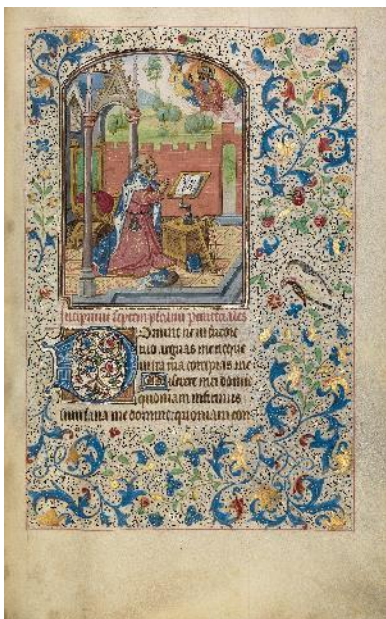 Incipiunt septem psalmi penitentiales
Domine ne in furore
tuo arguas me neque
in ira tua corripias me
Miserere mei domine
quoniam infirmus
sum sana me domine quoniam con